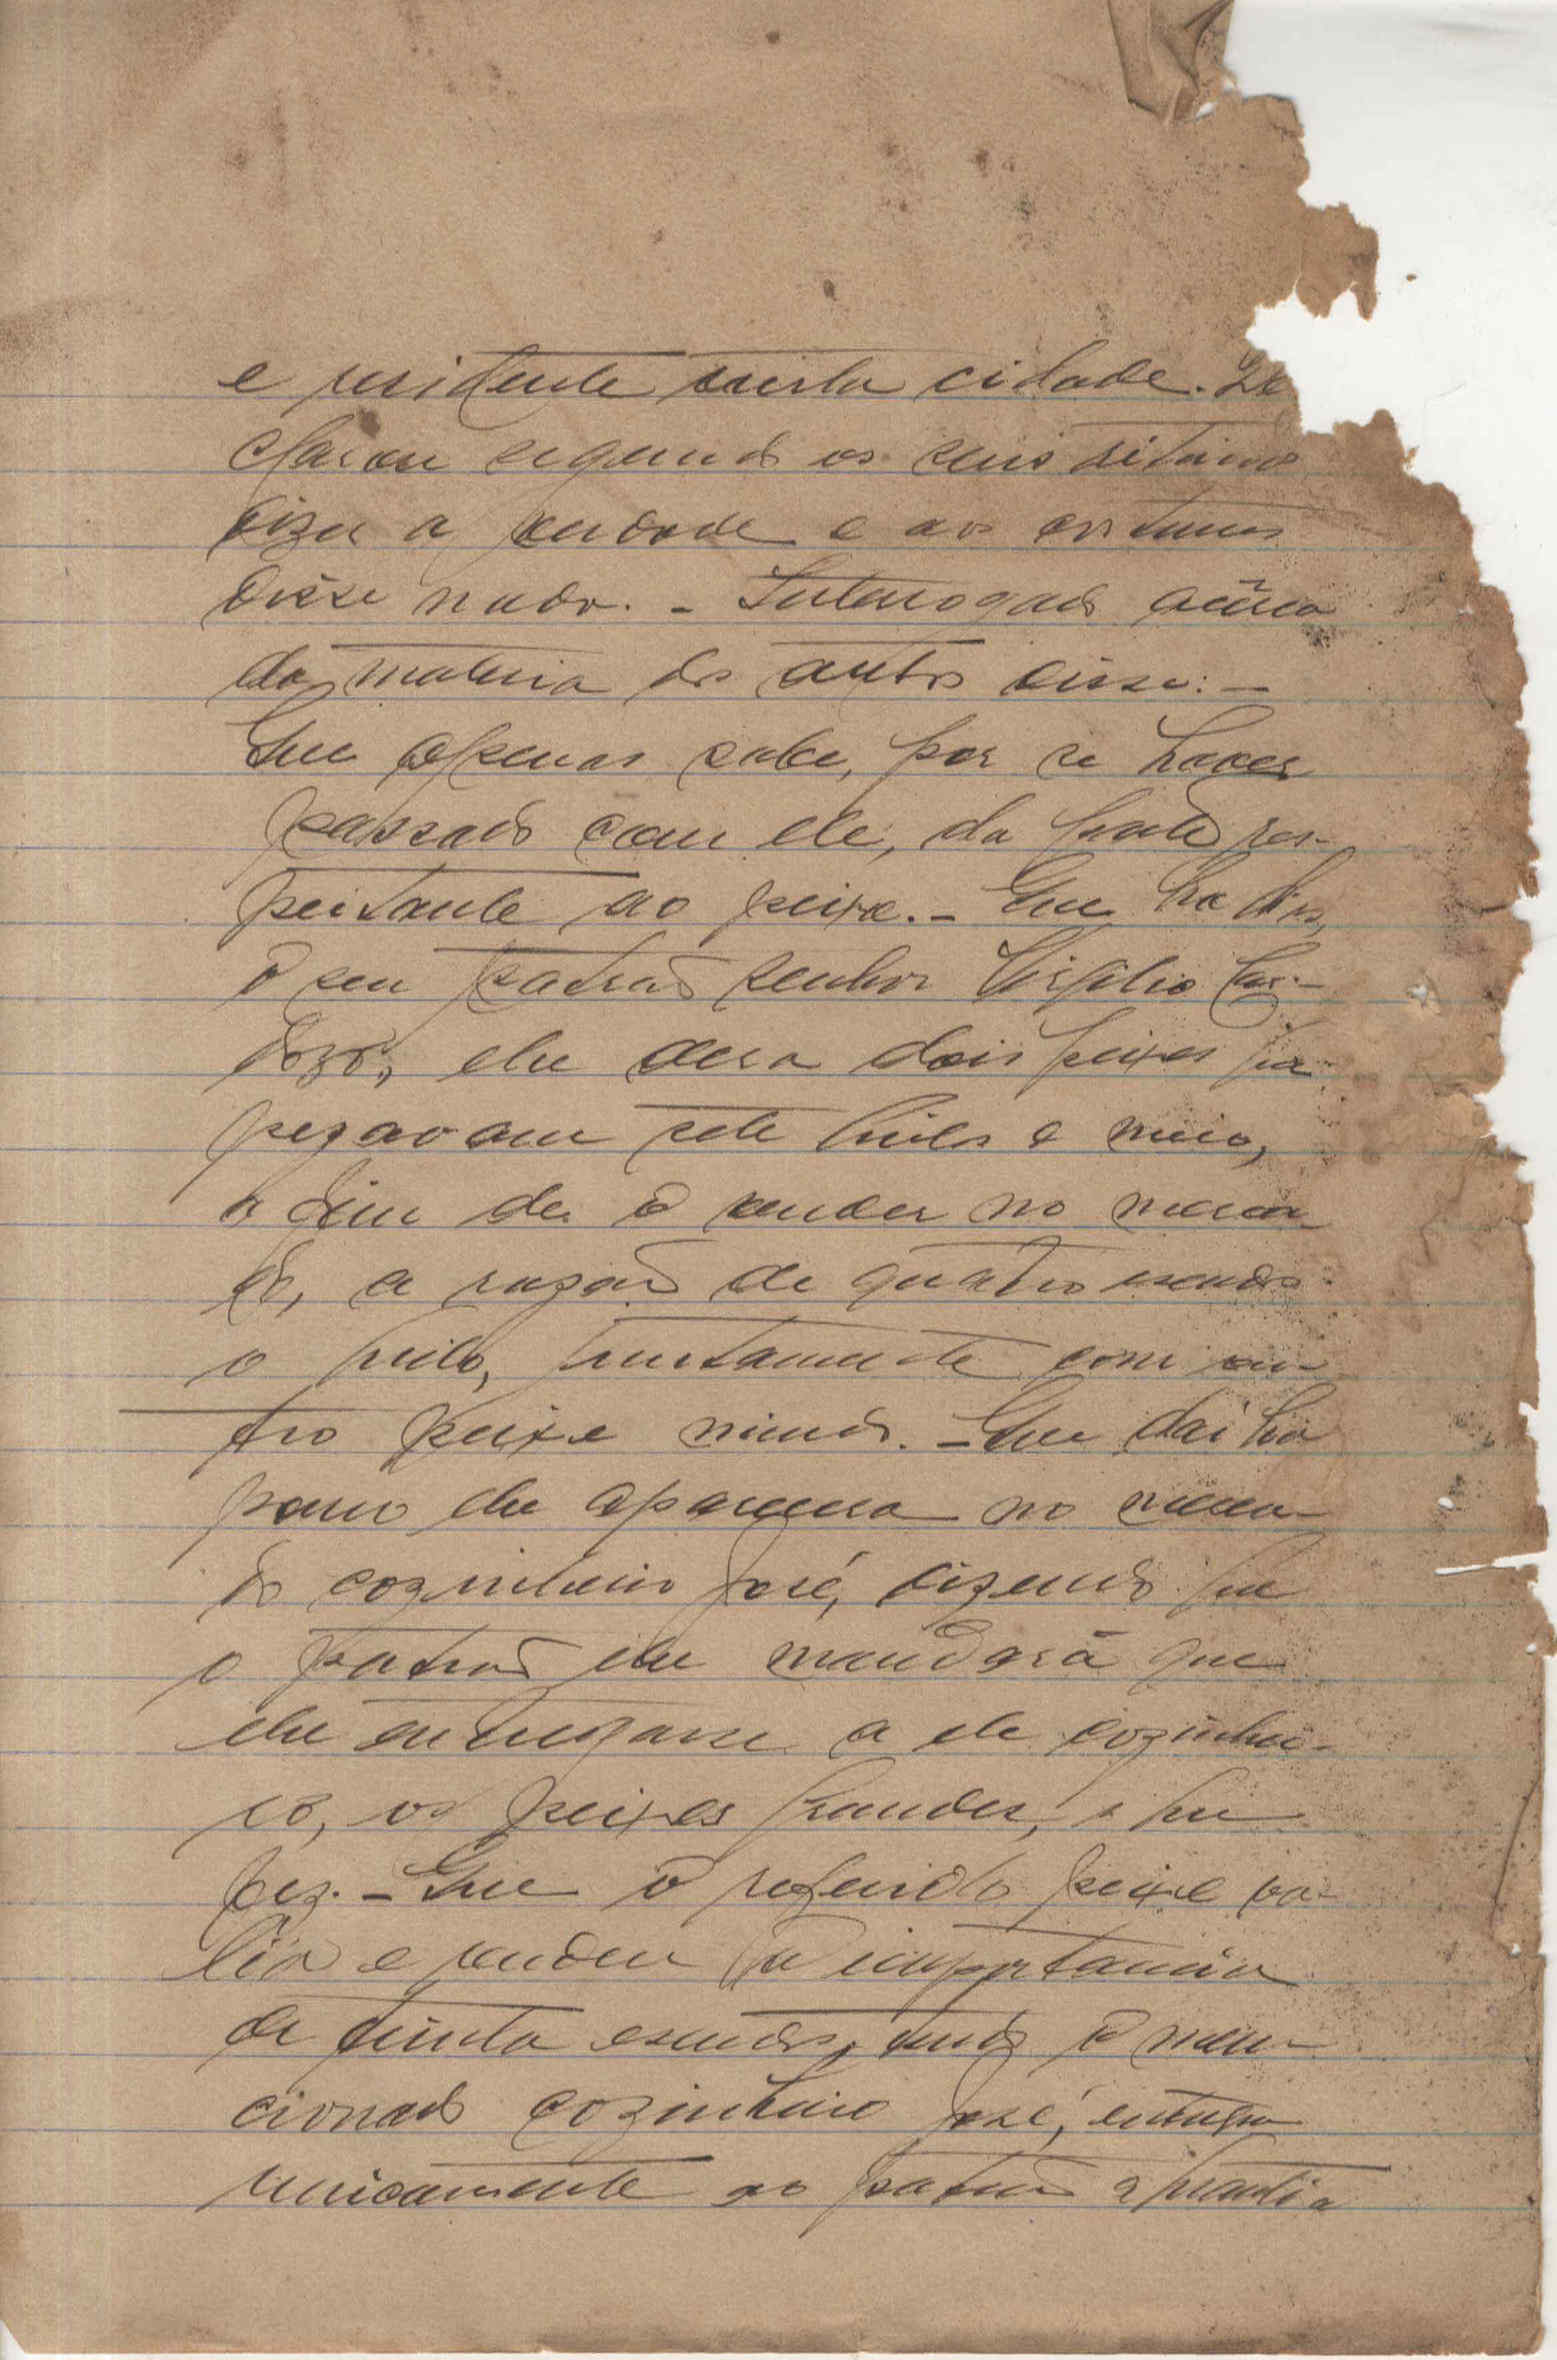 e residente nesta cidade. De
clarou segundo os seus ritos
dizer a verdade e aos costumes
disse nada. - Interrogado acêrca
da materia do auto disse: -
Que apenas sabe, por se haver
passado com ele, da parte res-
peitante ao peixe. - Que ha dias,
o seu patrão senhor Virgilio Car-
dozo, lhe dera dois peixes que
pezavam sete kilos e meio,
a fim de o vender no merca-
do, a razão de quatro escudos
o kilo, juntamente com ou-
tro peixe miudo. - Que dai ha
pouco lhe aparecera no merca-
do cozinheiro José, dizendo que
o patrão lhe mandará que
lhe entregasse a ele cozinhei-
ro, os peixes grandes, o que
fez. - Que o referido peixe va-
lia e rendeu a importancia
de trinta escudos, tendo o men-
cionado cozinheiro José, entregue
unicamente ao patrão a quantia